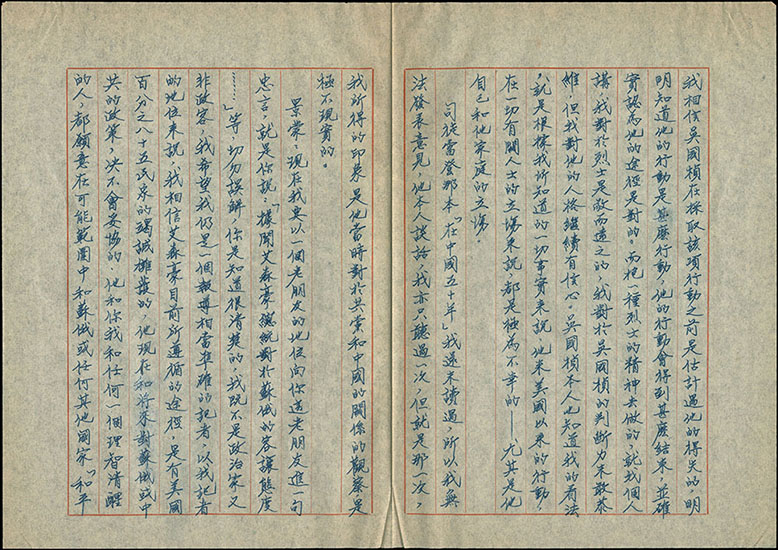 我相信吳國楨在採取該項行動之前是估計過他的得失的，明
明知道他的行動是甚麽行動，他的行動會得到甚麽結束，並確
實認為他的途徑是對的。而抱一種烈士的精神去做的，就我個人
講，我對於烈士是敬而遠之的，我對於吳國楨的判斷力未敢恭
維，但我對他的人格繼續有信心。吳國楨本人也知道我的看法
，就是根據我所知道的一切事實來說，他來美國以來的行動，
在一切有關人士的立場來說，都是極為不幸的——尤其是他
自己和他家庭的立場。
司徒雷登那本「在中國五十年」我還未讀過，所以我無
法發表意見，他本人談話，我亦只聽過一次，但就是那一次，
我所得的印象是他當時對於共黨和中國的關係的觀察是
極不現實的。
景棠：現在我要以一個老朋友的地位向你這老朋友進一句
忠言，就是你說：「據聞艾森豪總統對於蘇俄的容讓態度
……」等，切勿誤解，你是知道很清楚的，我既不是政治家又
非政客，我希望我仍是一個報導相當準確的記者，以我記者
的地位來說，我相信艾森豪目前所遵循的途徑，是有美國
百分之八十五民眾的竭誠擁護的，他現在和將來對蘇俄或中
共的政策，決不會妥協的，他和你我和任何一個理智清醒
的人，都願意在可能範圍中，和蘇俄或任何其他國家「和平